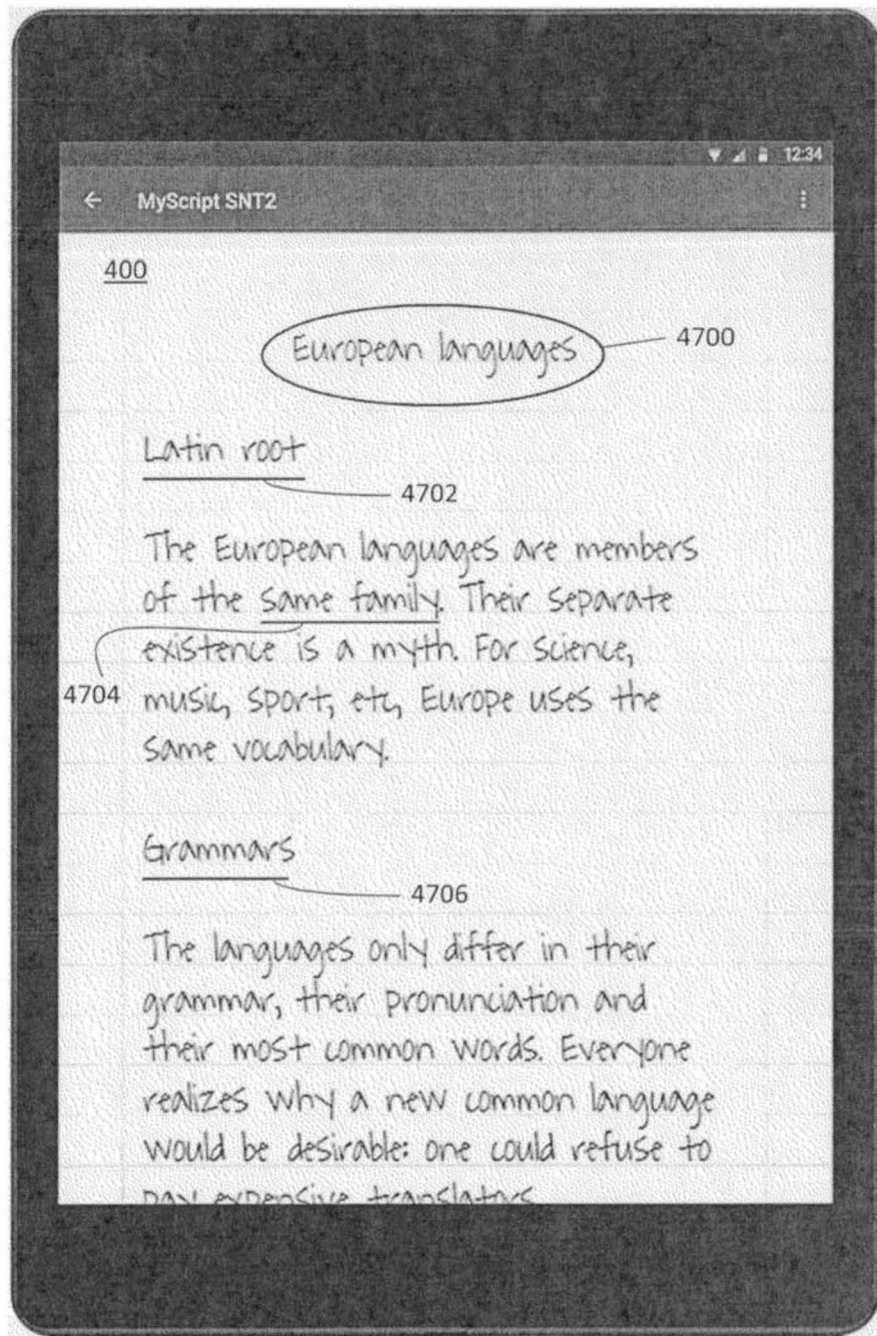 12:34
MyScript SNT2
400
European languages
4700
Latin root
4702
The European languages are members
of the same family. Their separate
existence is a myth. For science,
4704
music, sport, etc, Europe uses the
same vocabulary.
Grammars
4706
The languages only differ in their
grammar, their pronunciation and
their most common words. Everyone
realizes why a new common language
would be desirable: one could refuse to
pay expensive translators